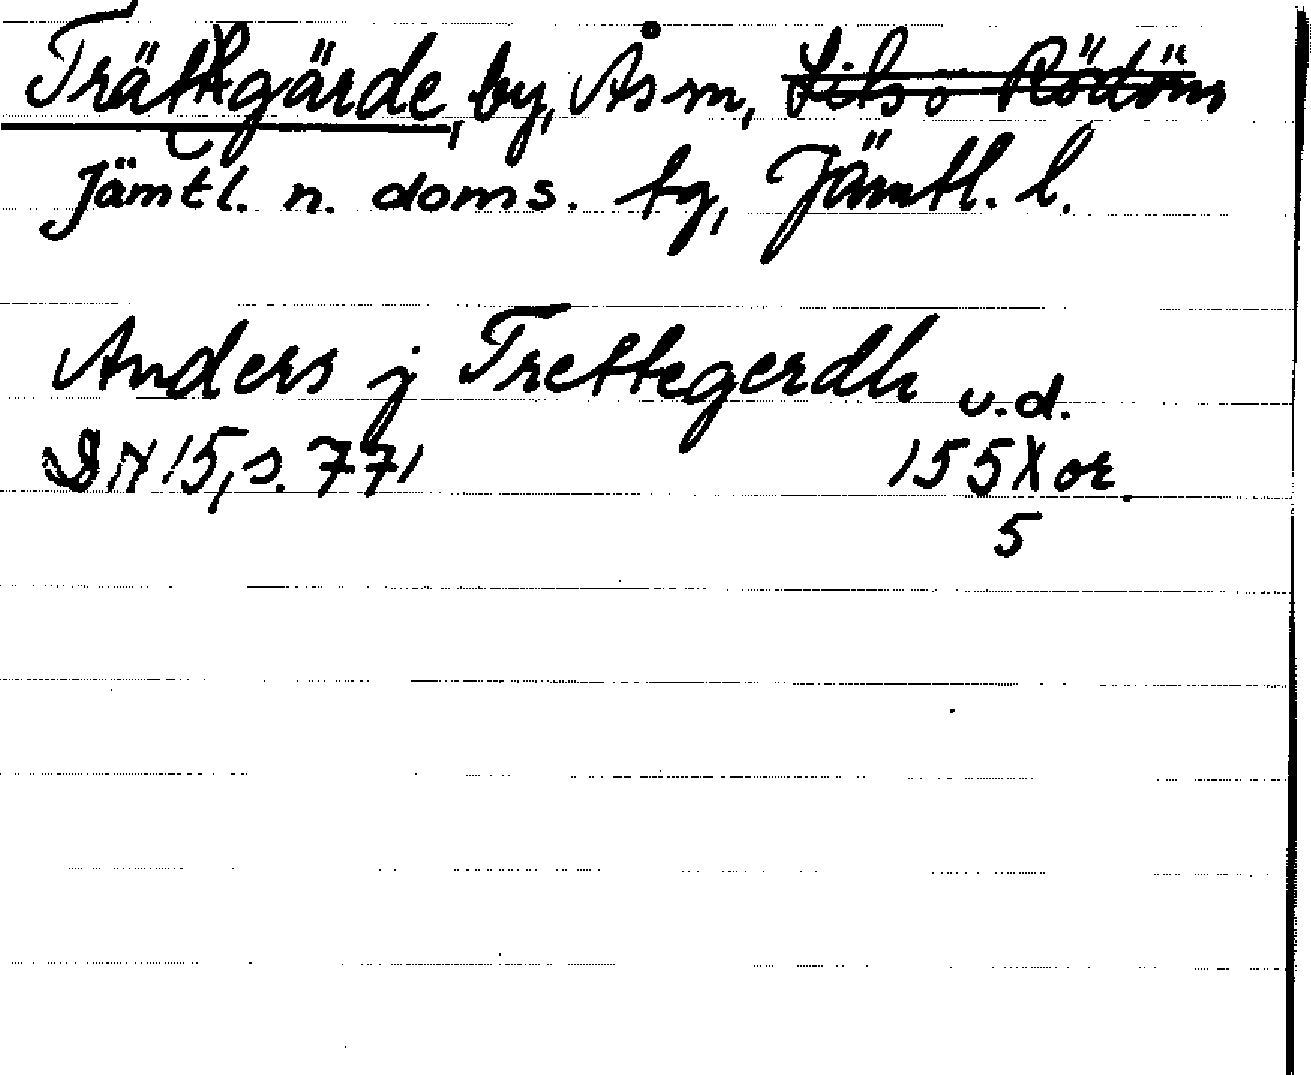 Trättgärde, by, Ås sn, Liths o Rödöns
Jämtl. n. doms. tg, Jämtl. l.
Anders j Trettegerdh u.d.
DN 15, s. 77, 155X or.
5